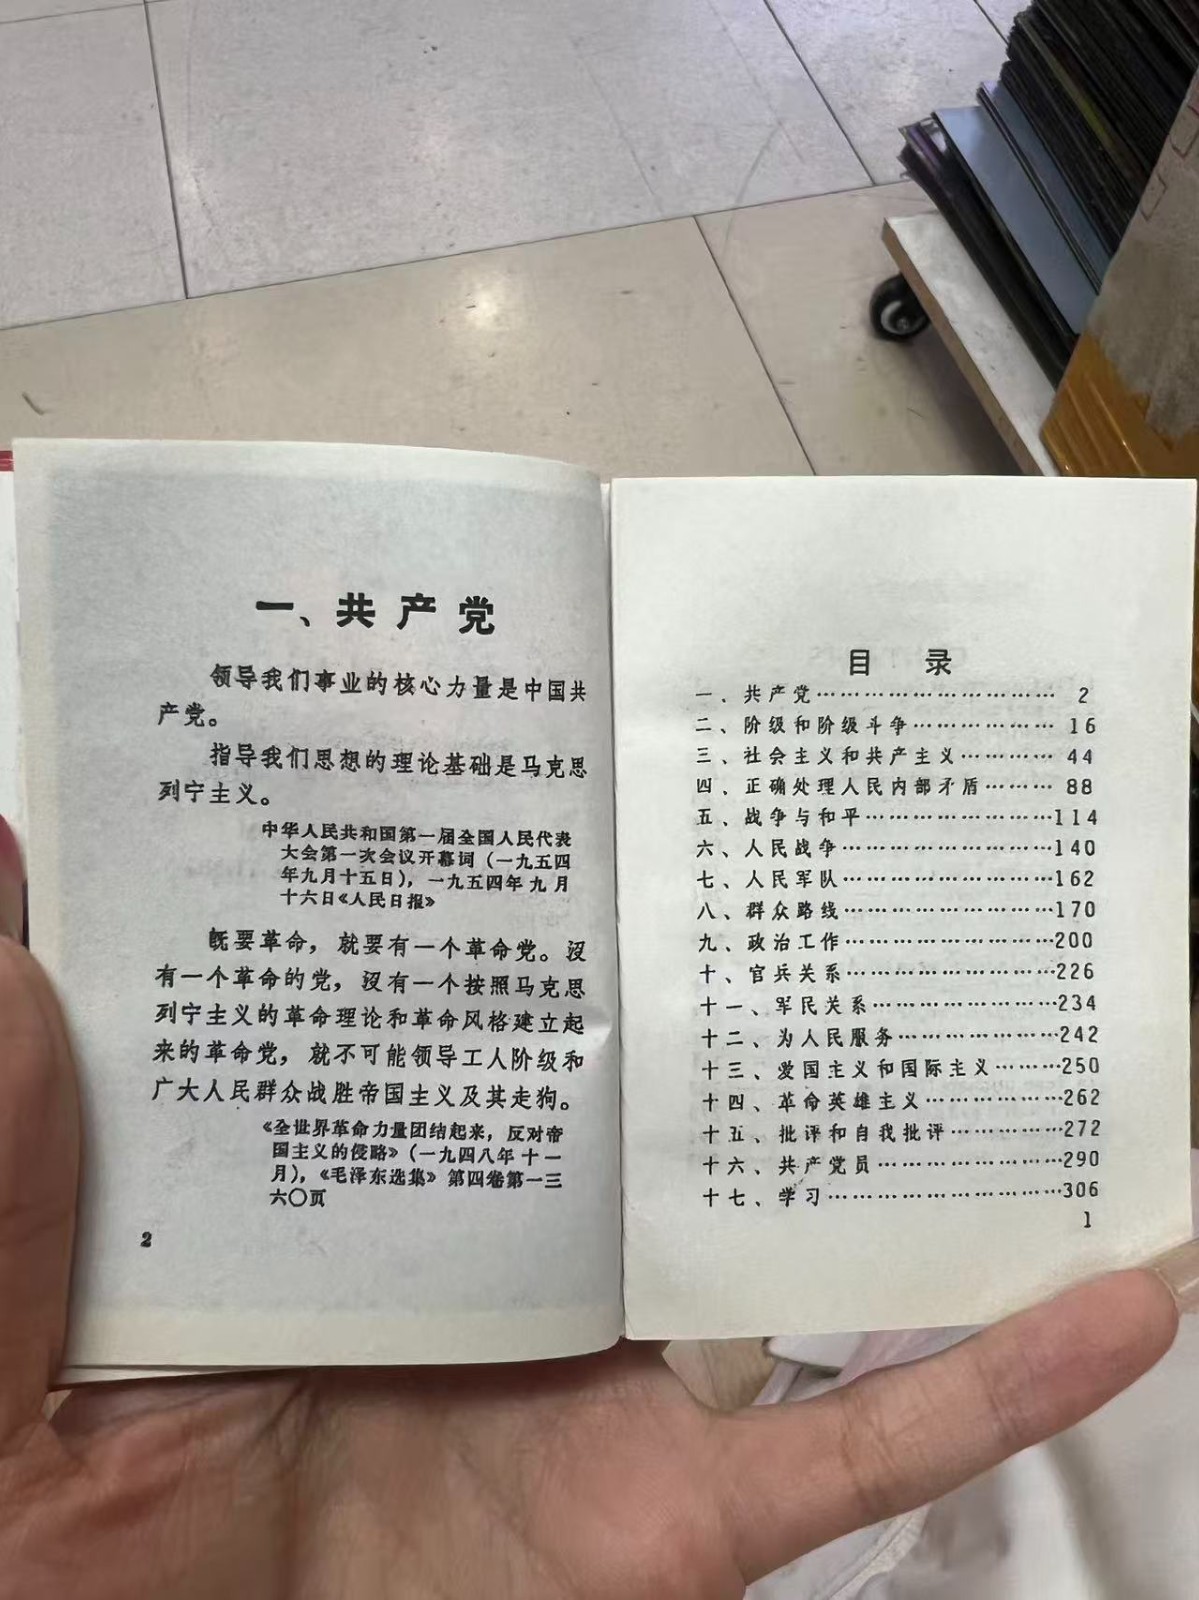 一、共产党
领导我们事业的核心力量是中国共
产党。
指导我们思想的理论基础是马克思
列宁主义。
中华人民共和国第一届全国人民代表
大会第一次会议开幕词（一九五四
年九月十五日），一九五四年九月
十六日《人民日报》
既要革命，就要有一个革命党。没
有一个革命的党，没有一个按照马克思
列宁主义的革命理论和革命风格建立起
来的革命党，就不可能领导工人阶级和
广大人民群众战胜帝国主义及其走狗。
《全世界革命力量团结起来，反对帝
国主义的侵略》（一九四八年十一
月），《毛泽东选集》第四卷第一三
六〇页
2
目 录
一、共产党……………………………2
二、阶级和阶级斗争………………16
三、社会主义和共产主义…………44
四、正确处理人民内部矛盾………88
五、战争与和平……………………114
六、人民战争………………………140
七、人民军队………………………162
八、群众路线………………………170
九、政治工作………………………200
十、官兵关系………………………226
十一、军民关系……………………234
十二、为人民服务…………………242
十三、爱国主义和国际主义………250
十四、革命英雄主义………………262
十五、批评和自我批评……………272
十六、共产党员……………………290
十七、学习…………………………306
1